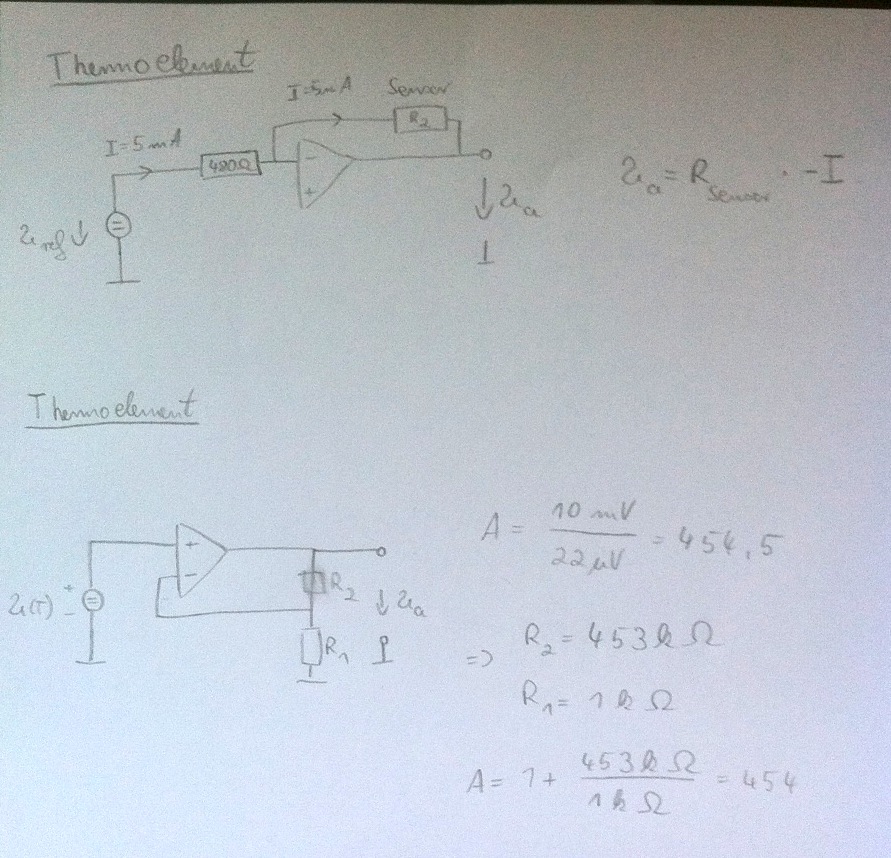 Thermoelement
I=5mA Sensor
R₂
I=5mA
480Ω
−
+
u_ref ↓
↓ u_a
u_a = R_Sensor · -I
Thermoelement
+
−
u(T) + −
R₂ ↓ u_a
R₁
A = 10 mV / 22 µV = 454,5
=> R₂ = 453 k Ω
R₁ = 1 k Ω
A = 1 + 453 k Ω / 1 k Ω = 454